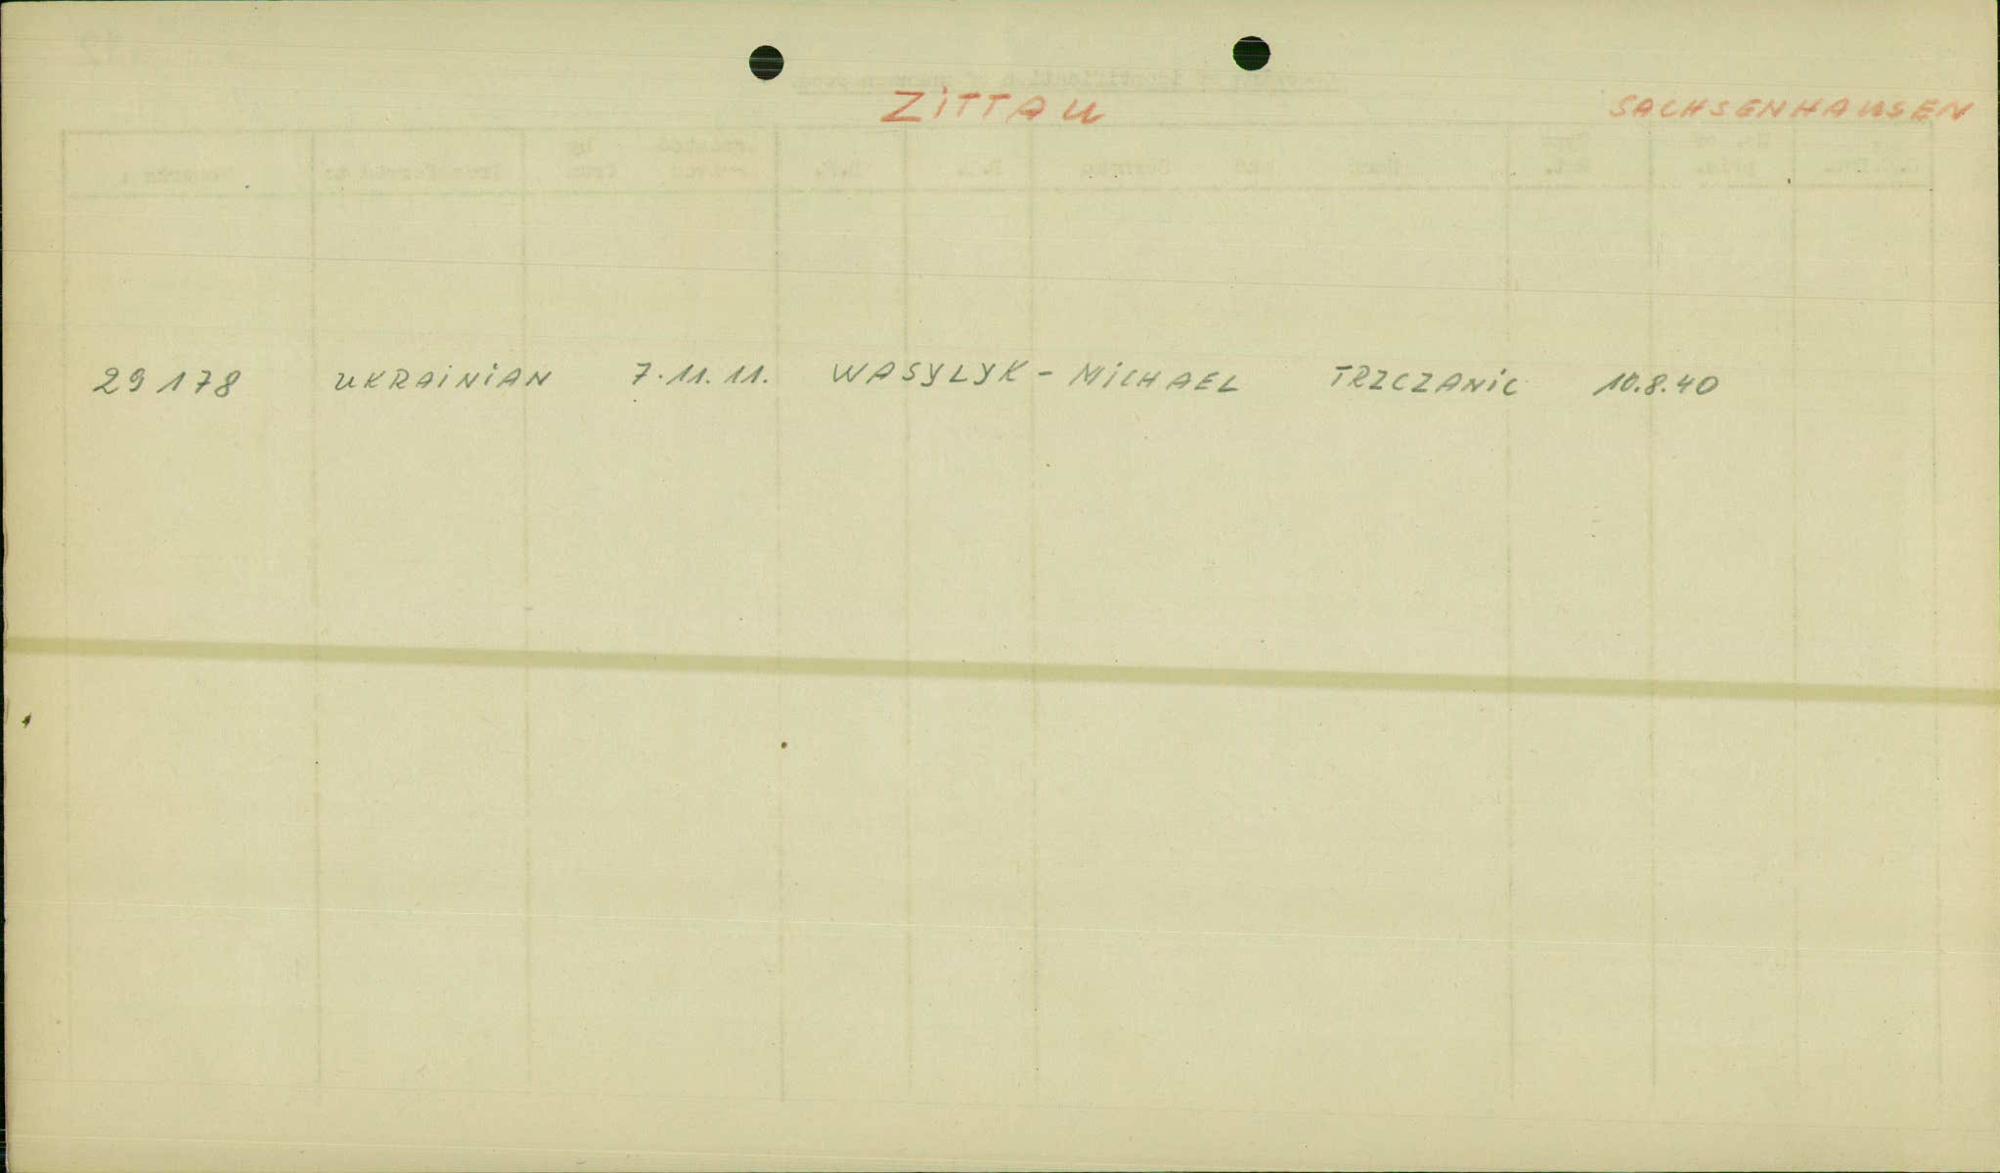 ZITTAU SACHSENHAUSEN
29178 UKRAINIAN 7.11.11. WASYLYK - MICHAEL TRZCZANIC 10.8.40